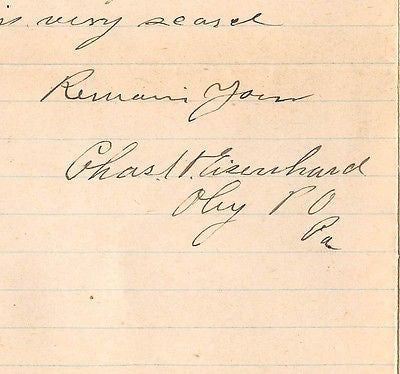 is very scarse
Remain Your
Chas. H. Eisenhard
Oley P O
Pa